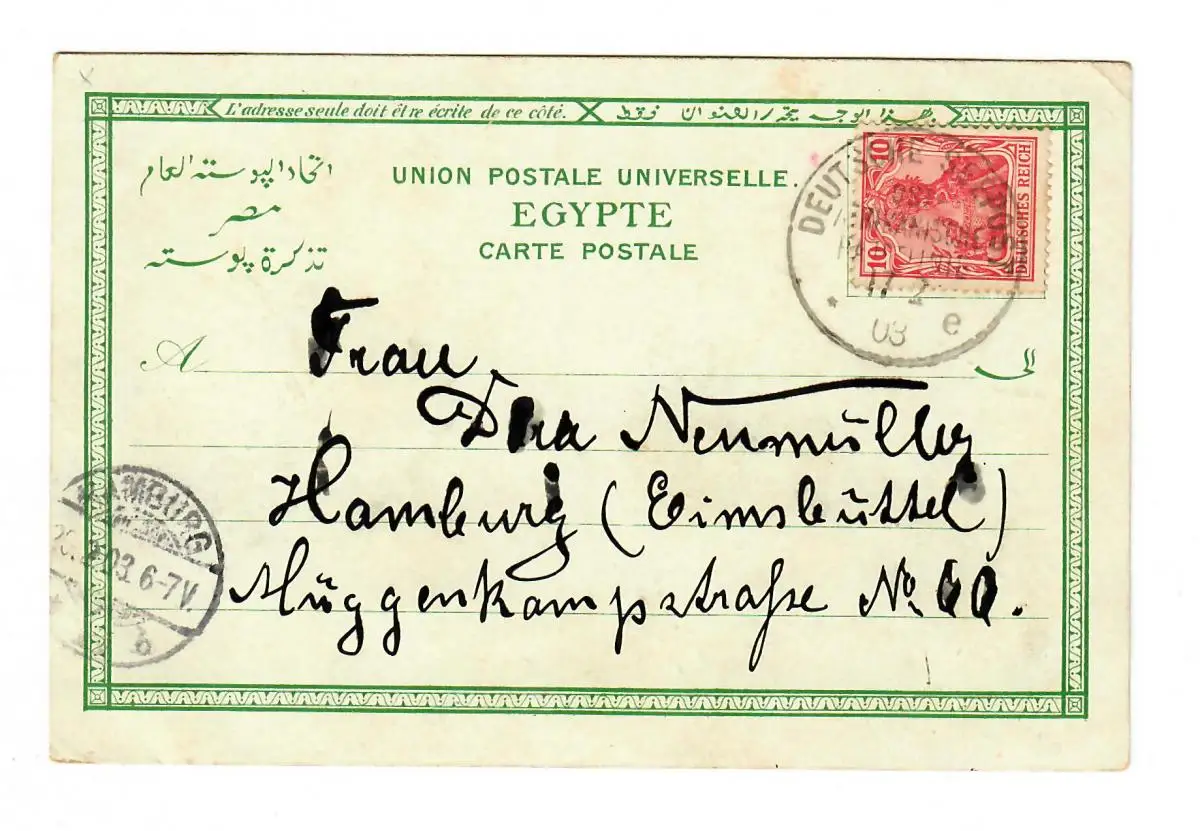 L'adresse seule doit être écrite de ce côté. بهذا الوجه يحرر العنوان فقط
اتحاد البوسته العام
مصر
تذكرة بوسته
UNION POSTALE UNIVERSELLE.
EGYPTE
CARTE POSTALE
10 10
DEUTSCHES REICH
DEUTSCHE SEEPOST
11 2
03 e
A الى
Frau
Dora Neumüller
Hamburg (Eimsbüttel)
Müggenkampstraße No.
HAMBURG
03. 6-7V.